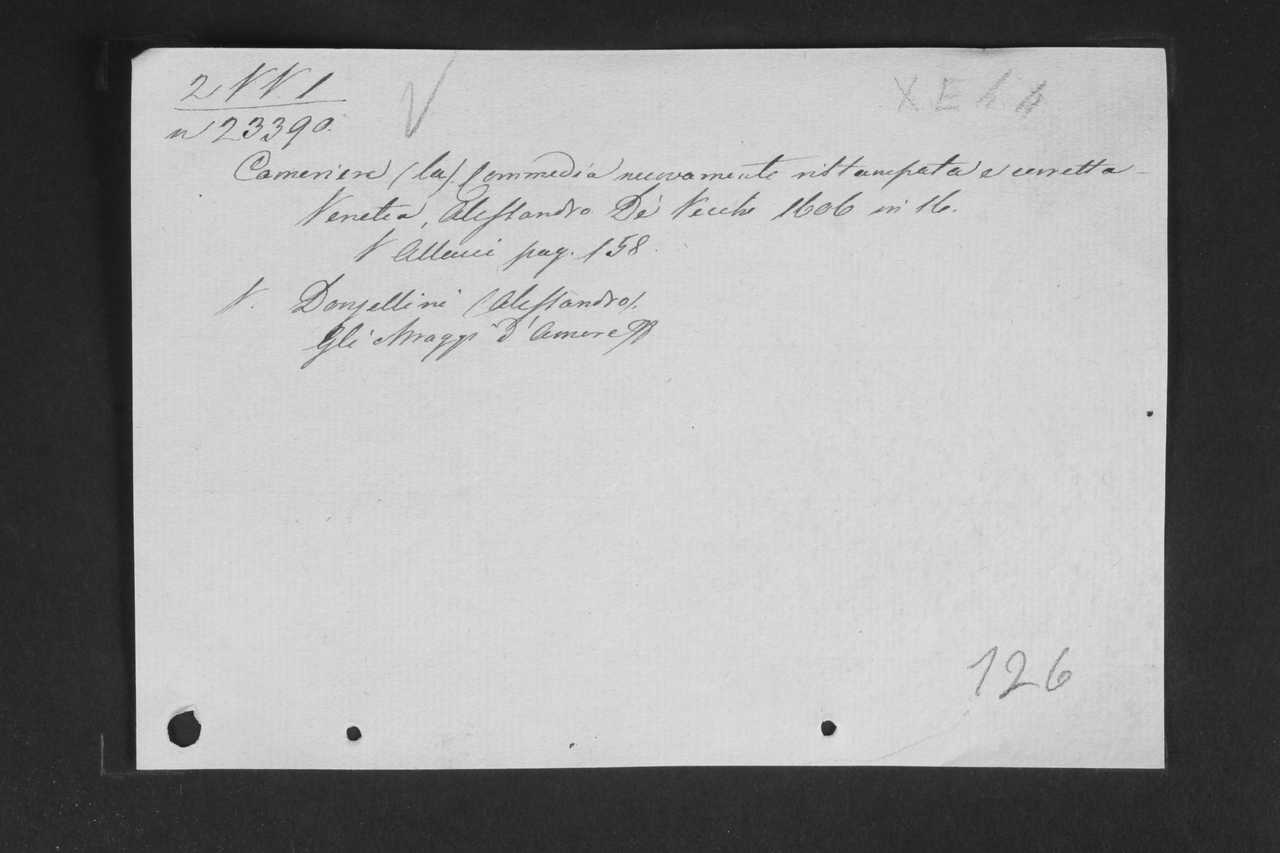 2 V V 1
V
X E
n 23390.
Cameriera (la). Commedia nuovamente ristampata e corretta -
Venetia, Alessandro De' Vecchi 1606 in 16.
V Allacci pag. 158.
V. Donzellini (Alessandro).
Gli d'Amore
126